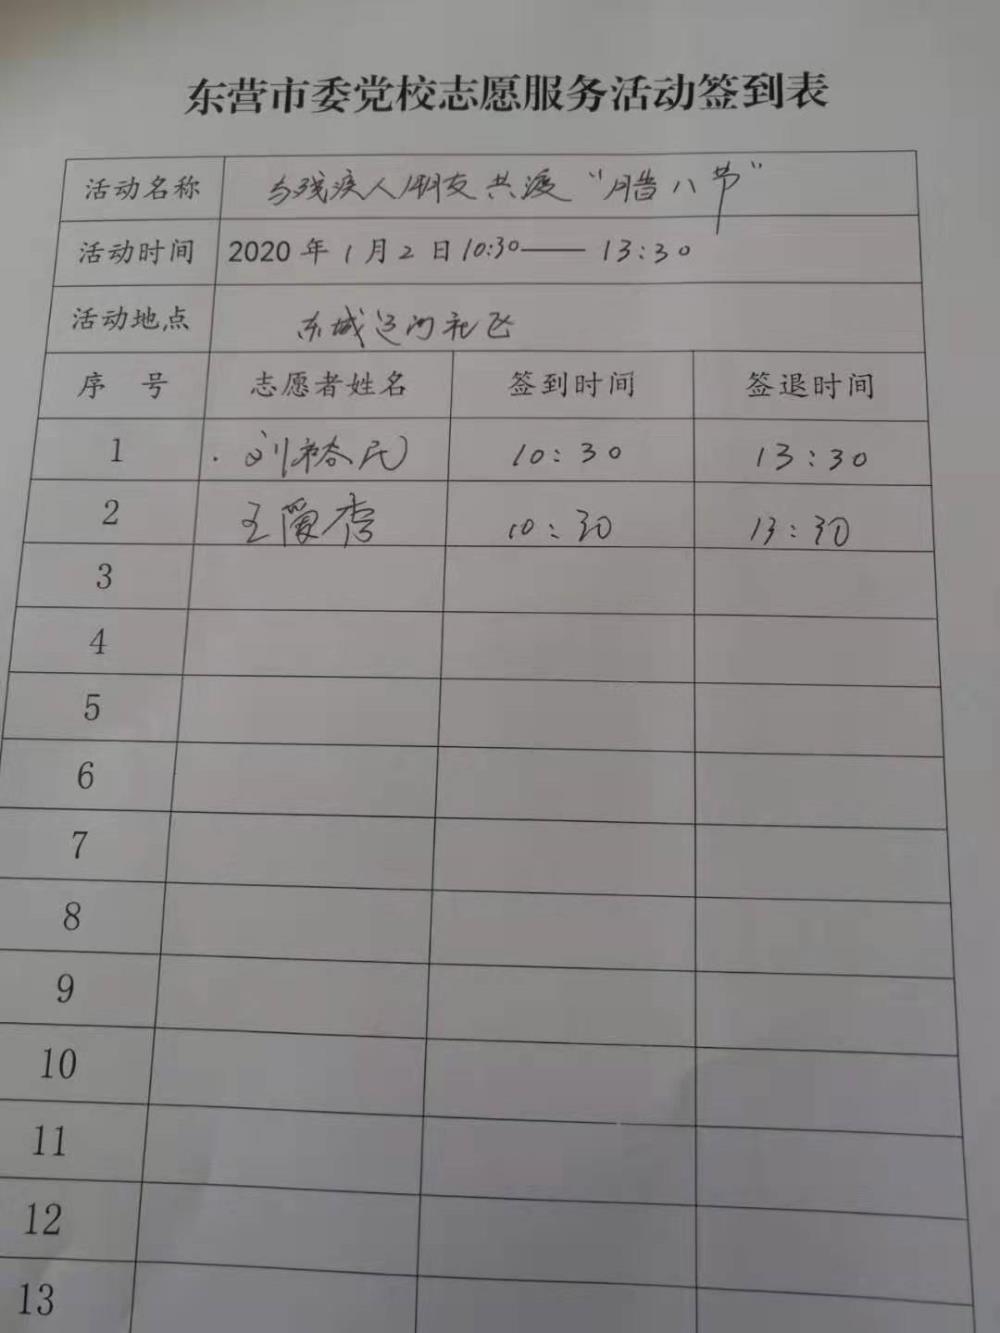 东营市委党校志愿服务活动签到表
活动名称 与残疾人朋友共渡“腊八节”
活动时间 2020年1月2日10:30——13:30
活动地点 东城运河社区
序 号 志愿者姓名 签到时间 签退时间
1 刘裕民 10:30 13:30
2 王 秀 10:30 13:30
3
4
5
6
7
8
9
10
11
12
13